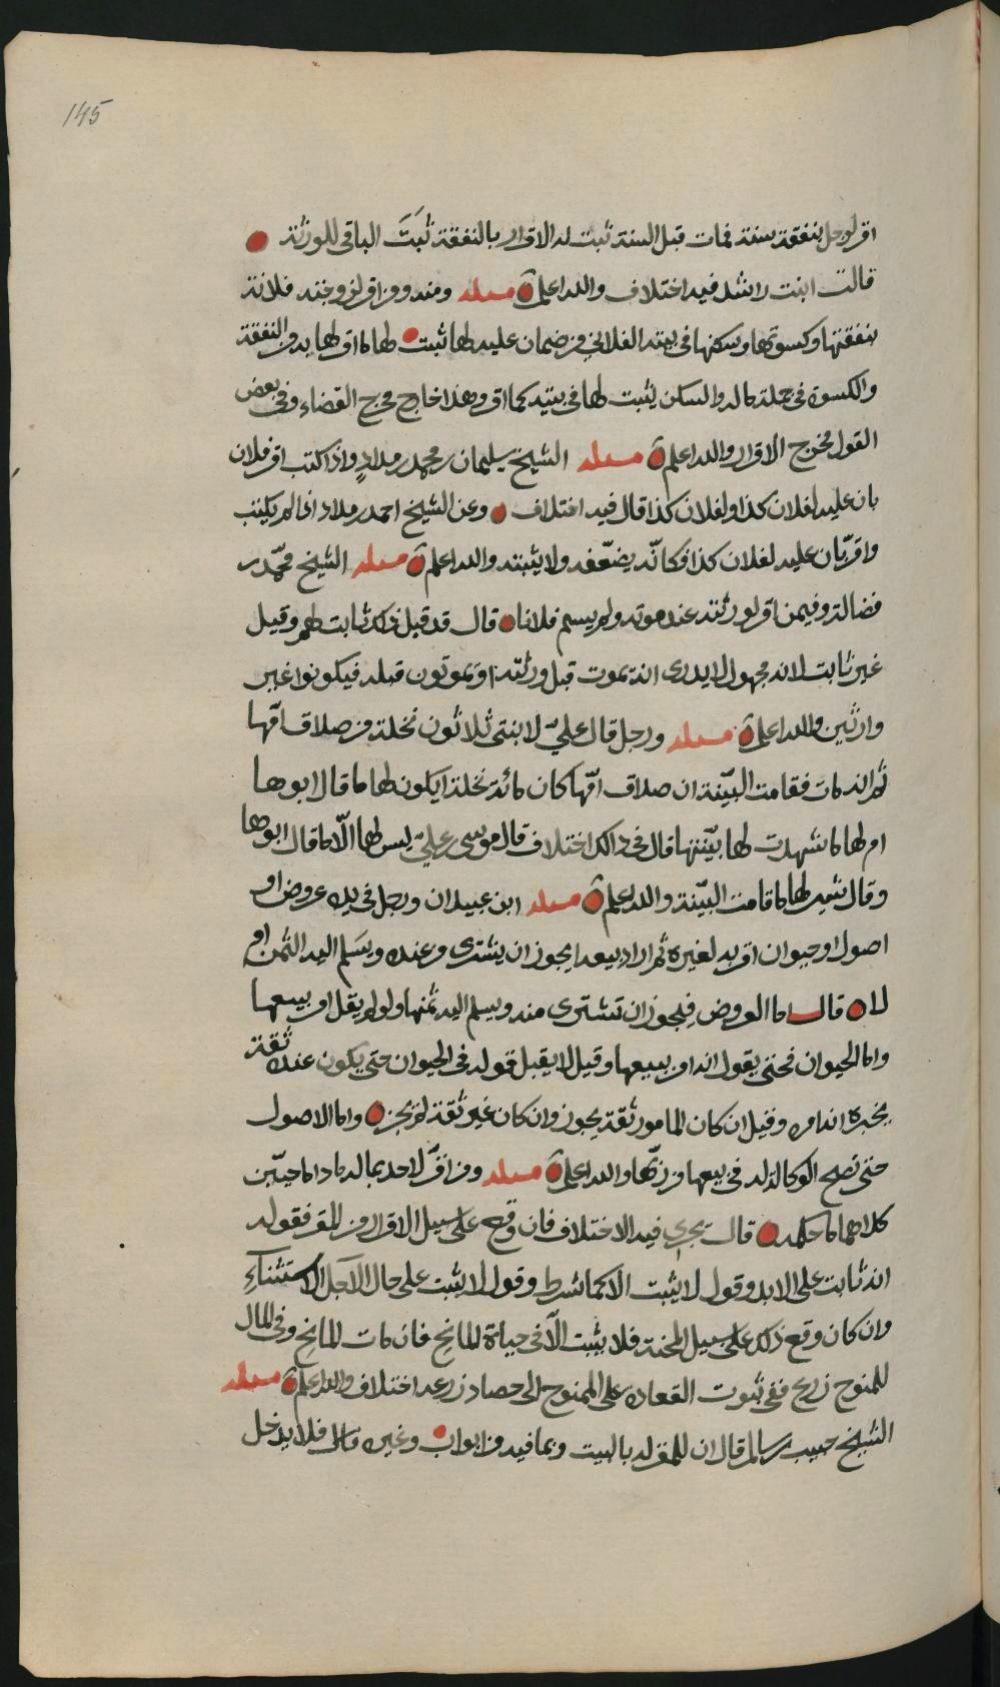 145
اقر لرجل بنفقة سنة فمات قبل السنة ثبت له الاقرار بالنفقة ثبت الباقي للورثة
قالت ابنت راشد فيه اختلاف والله اعلم مسله ومنه ومن اقر لزوجته فلانة
بنفقتها وكسوتها وسكنها في بيته الفلاني من ضمان عليه لها ثبت لها ما اقر لها به والنفقة
والكسوة في جملة ماله والسكن يثبت لها في بيته كما اقر وهذا خارج مخرج القضاء وفي بعض
القول مخرج الاقرار والله اعلم مسله الشيخ سليمان بن محمد بن مداد واذا كتب اقر فلان
بان عليه لفلان كذا ولفلان كذا قال فيه اختلاف وعن الشيخ احمد بن مداد اذا لم يكتب
واقر بان عليه لفلان كذا فكانه يضعفه ولا يثبته والله اعلم مسله الشيخ محمد بن
فضالة وفيمن اقر لورثته عند موته ولم يسم فلانا قال قد قيل ذلك ثابت لهم وقيل
غير ثابت لانه مجهول لا يدرى انه يموت قبل ورثته او يموتون قبله فيكونوا غير
وارثين والله اعلم مسله ورجل قال عليّ لابنتي ثلاثون نخلة من صداق امّها
ثم انه مات فقامت البيّنة ان صداق امّها كان مائة نخلة ايكون لها ما قال ابوها
ام لها ما شهدت لها بيّنتها قال في ذالك اختلاف قال موسى بن عليّ ليس لها الّا ما قال ابوها
وقال بشير لها ما قامت البيّنة والله اعلم مسله ابن عبيدان ورجل في يده عروض او
اصول او حيوان اقر به لغيره ثم اراد بيعه ايجوز ان يشترى من عنده ويسلم اليه الثمن ام
لا قال اما العروض فيجوز ان تشترى منه ويسلم اليه ثمنها ولو لم يقل امر ببيعها
واما الحيوان فحتى يقول انه امر ببيعها وقيل لا يقبل قوله في الحيوان حتى يكون عنده ثقة
يخبره انه امره وقيل ان كان المامور ثقة يجوز وان كان غير ثقة لم يجز واما الاصول
حتى تصح الوكالة له في بيعها من ربّها والله اعلم مسله ومن اقرّ لاحد بماله ما داما حيّين
كلاهما ما حكمه قال يجري فيه الاختلاف فان وقع على سبيل الاقرار من المقر فقول
انه ثابت على الابد وقول لا يثبت الا كما شرط وقول لا يثبت على حال لاجل الاستثناء
وان كان وقع ذلك على سبيل المنحة فلا يثبت الّا في حياة المانح فان مات المانح وفي المال
للممنوح زرع ففي ثبوت القعادة على الممنوح الى حصاد زرعه اختلاف والله اعلم مسله
الشيخ حبيب بن سالم قال ان للمقر له بالبيت وبما فيه من ابواب وغيره فلا يدخل